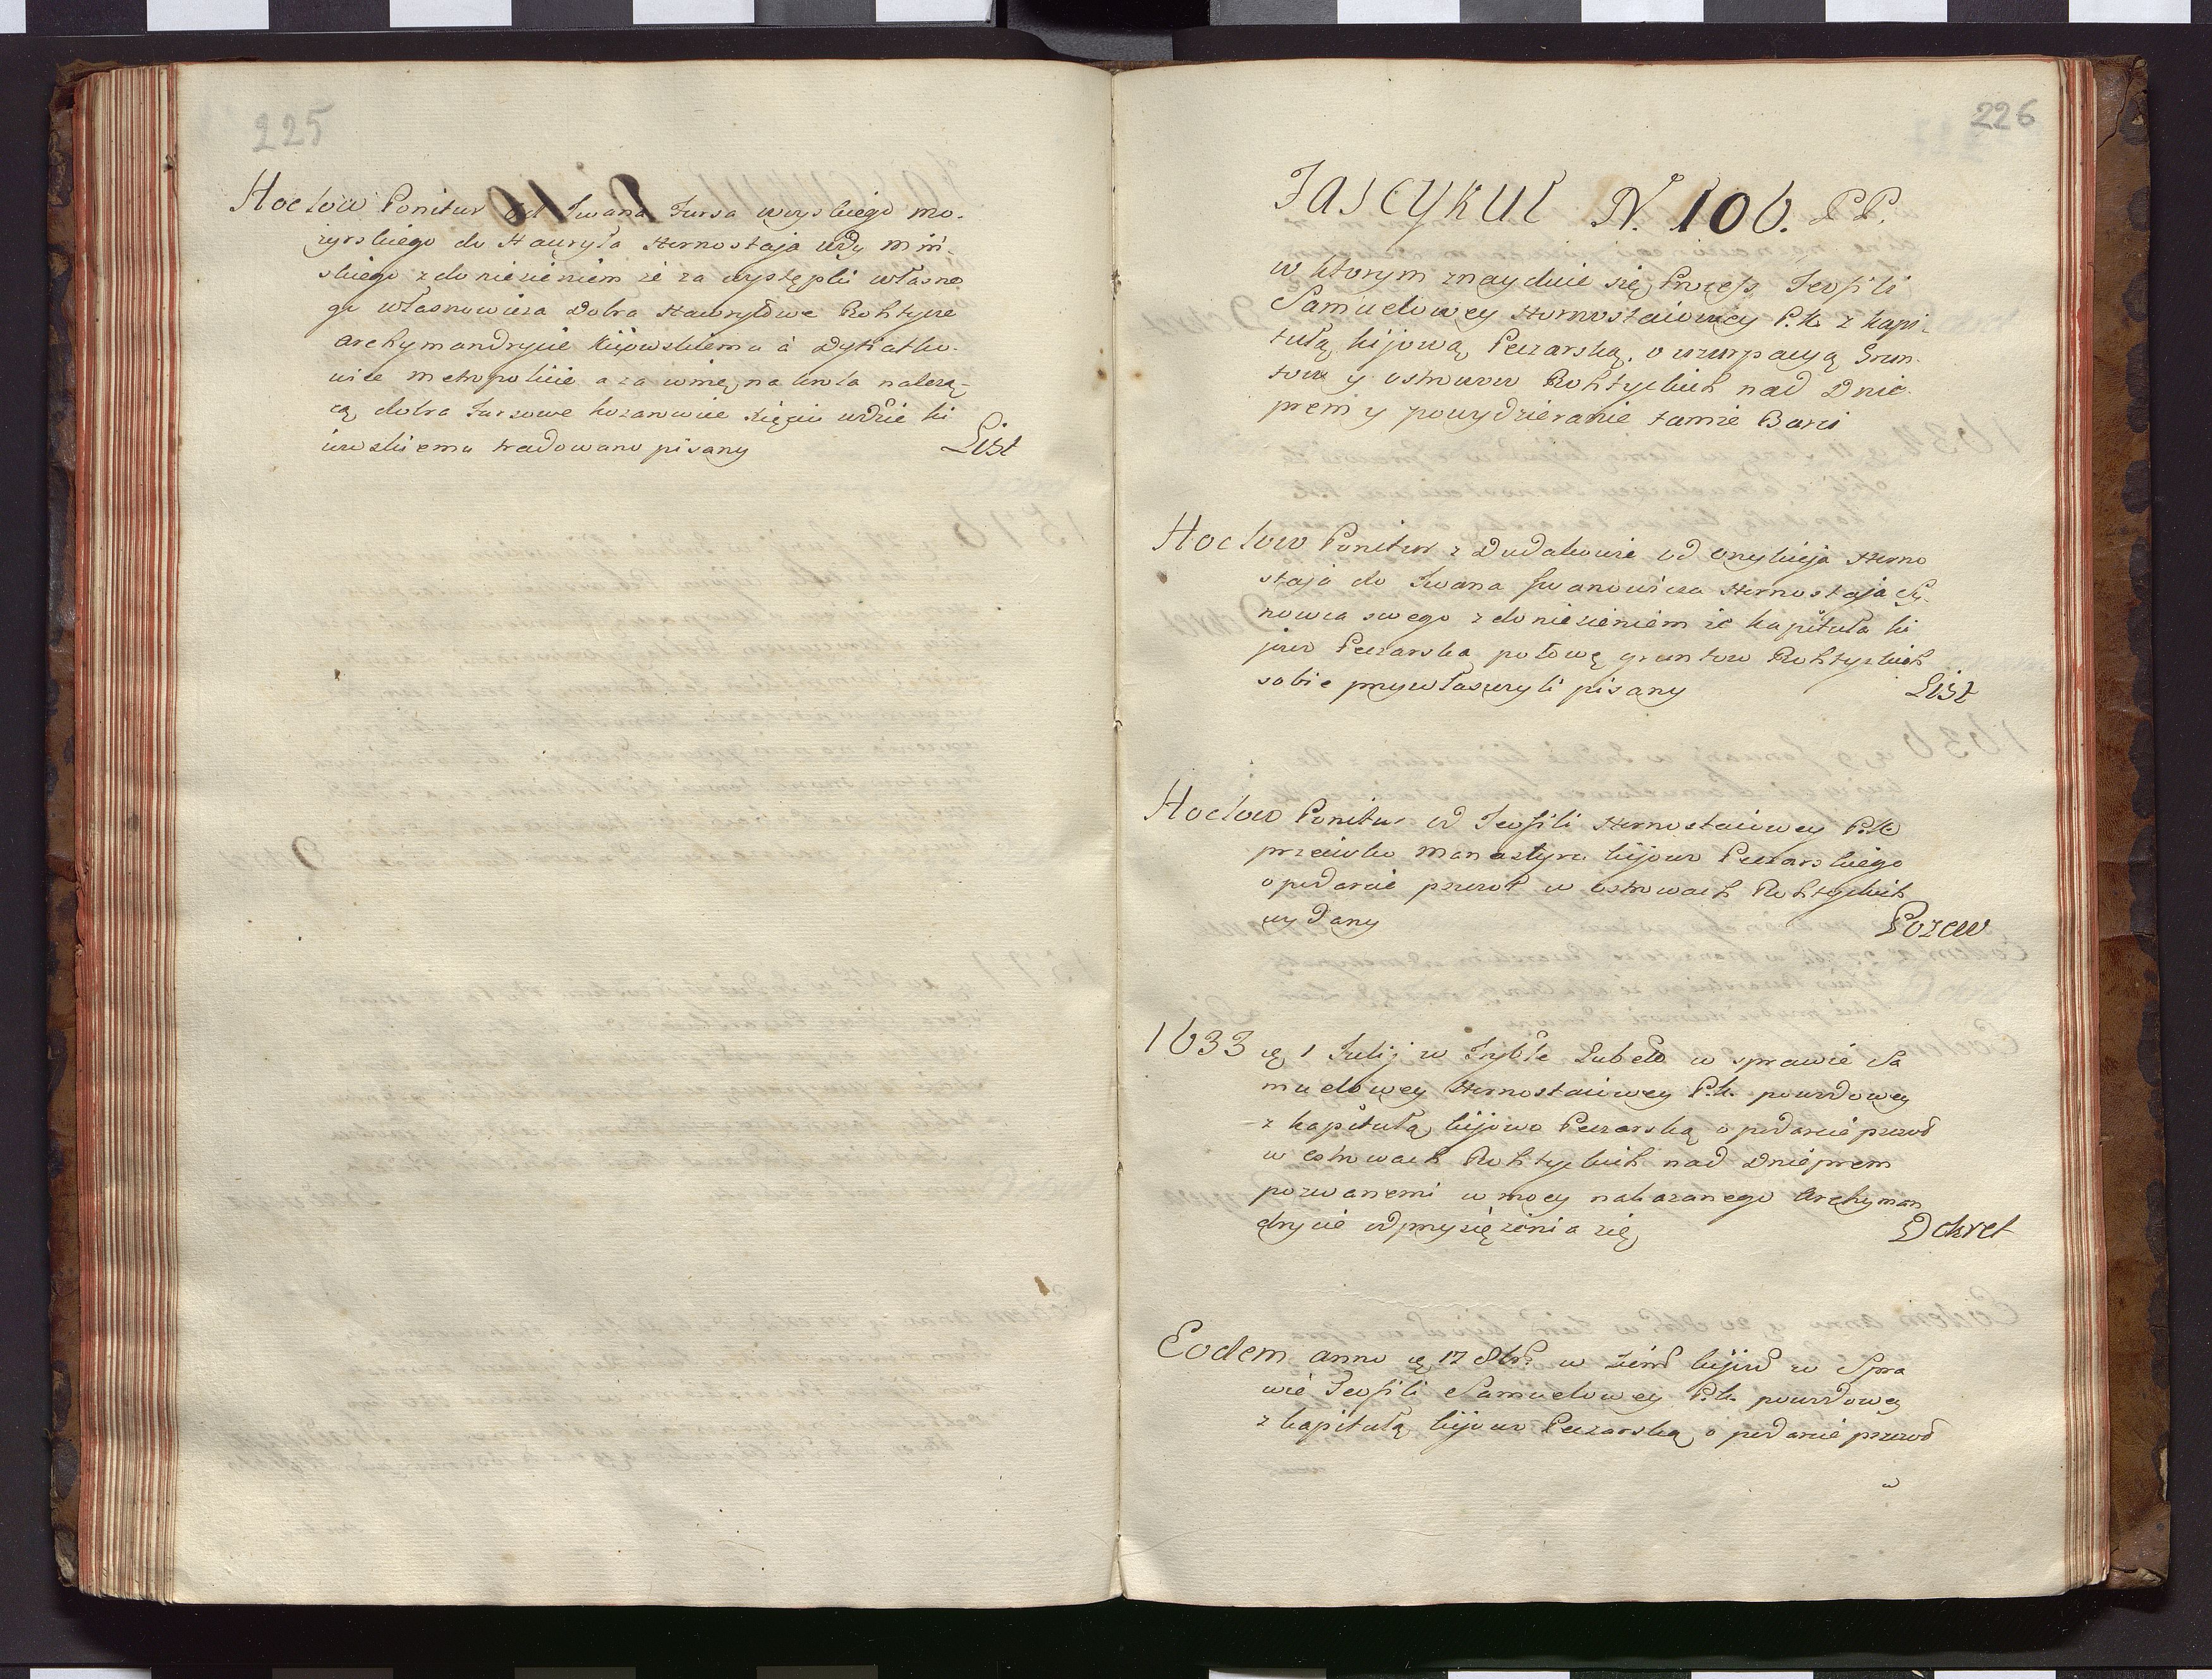 225
Hoc loco Ponitur od Iwana Tursa wozskiego mo-
zyrskiego do Hauryła Hornostaja wdy miń-
skiego z doniesieniem że za występki własno
go własnowieza Dobra Hawryłowe Rohtycze
archymandrycie kijowskiemu a Dytiatko-
wice metropolicie a za winę na króla należą-
cą dobra Tursowe kozarowice xięciu wdzie ki
iowskiemu tradowano pisany List
226
Fascykuł N. 106. PP.
w ktorym znayduie się Process Teofili
Samuelowey Hornostaiowey P.K. z kapi-
tułą kijową Peczarską, o uzurpacyą Grun-
tow y ostrowow Rohtyckich nad Dnie-
prem y powydzieranie tamże Barci
Hoc loco Ponitur z Dudakowie od Onykieja Horno
staja do Iwana Iwanowicza Hornostaja Sy-
nowca swego z doniesieniem że kapituła ki
jowo Peczarska połowę gruntow Rohtyckich
sobie przywłaszczyli pisany List
Hoc loco Ponitur od Teofili Hornostaiowey P.K.
przeciwko Monastyru kijowo Peczarskiego
o podarcie pszczoł w ostrowach Rohtyckich
wydany Pozew
1633 ą 1 Julij w Tryble Lubel w sprawie Sa
muelowey Hornostaiowey P.K. powodowey
z kapitułą kijowo Peczarską o podarcie pszczoł
w ostrowach Rohtyckich nad Dnieprem
pozwanemi w mocy nakazanego Archyman
drycie odprzysiężenia się Dekret
Eodem anno ą 17 8br w Ziem kijow w Spra
wie Teofili Samuelowey P.K. powodowey
z kapitułą kijowo Peczarską o podarcie pszczoł
w